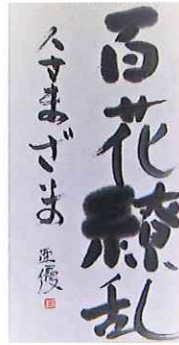 百花繚乱
人さまざま